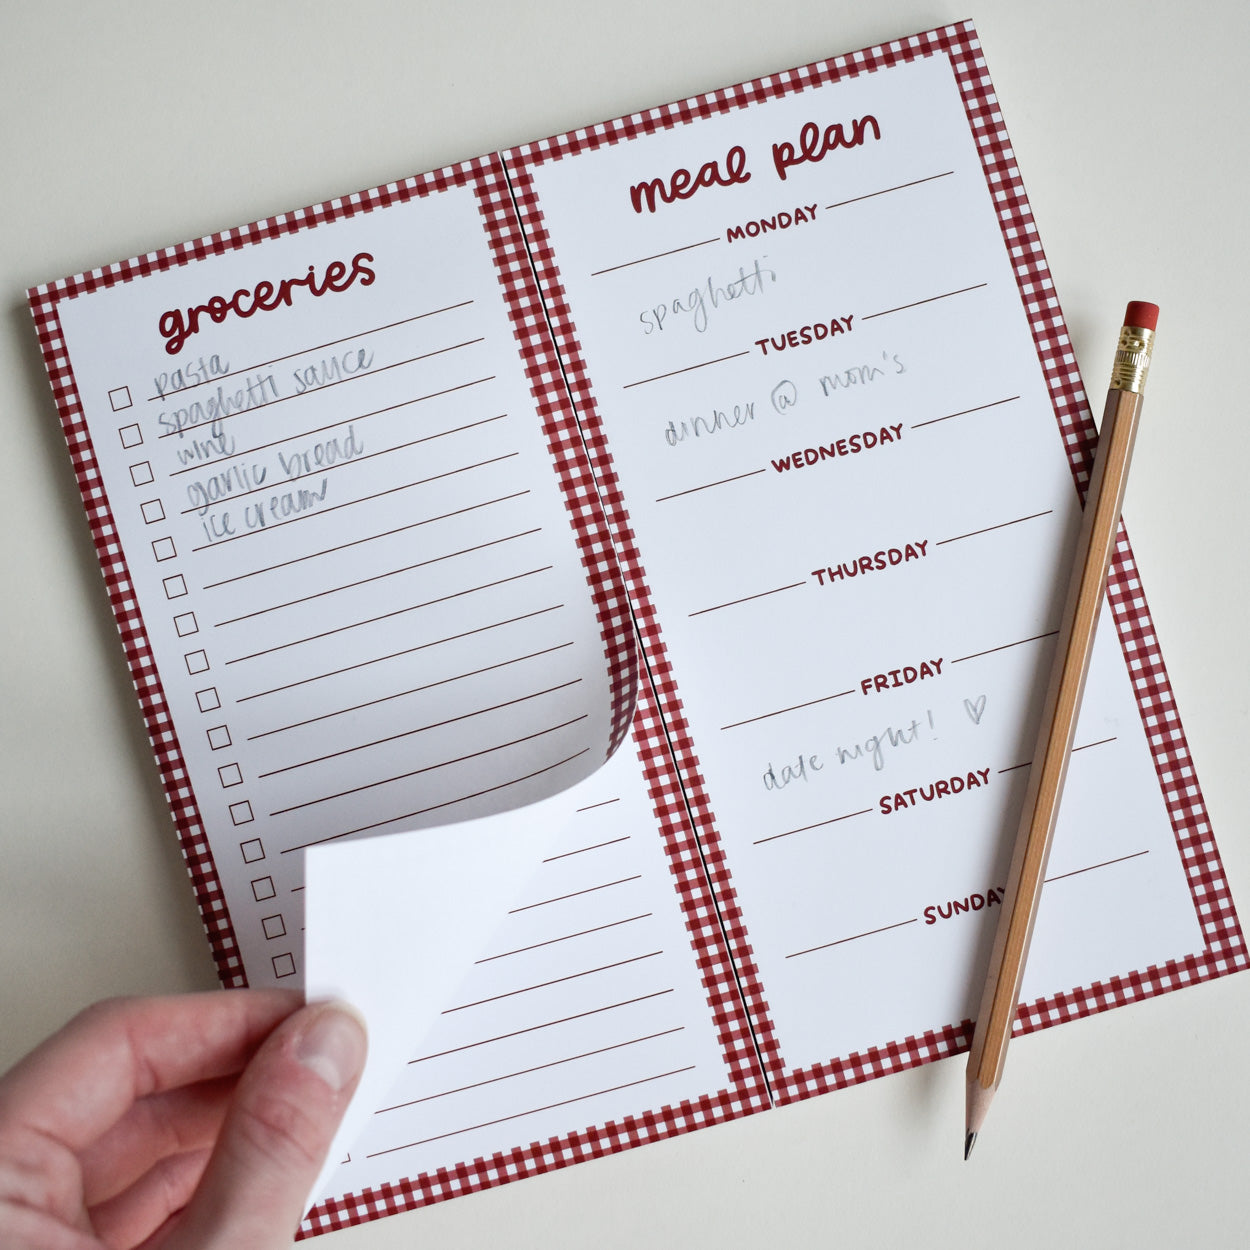 groceries
pasta
spaghetti sauce
wine
garlic bread
ice cream
meal plan
MONDAY
spaghetti
TUESDAY
dinner @ mom's
WEDNESDAY
THURSDAY
FRIDAY
date night! ♡
SATURDAY
SUNDAY